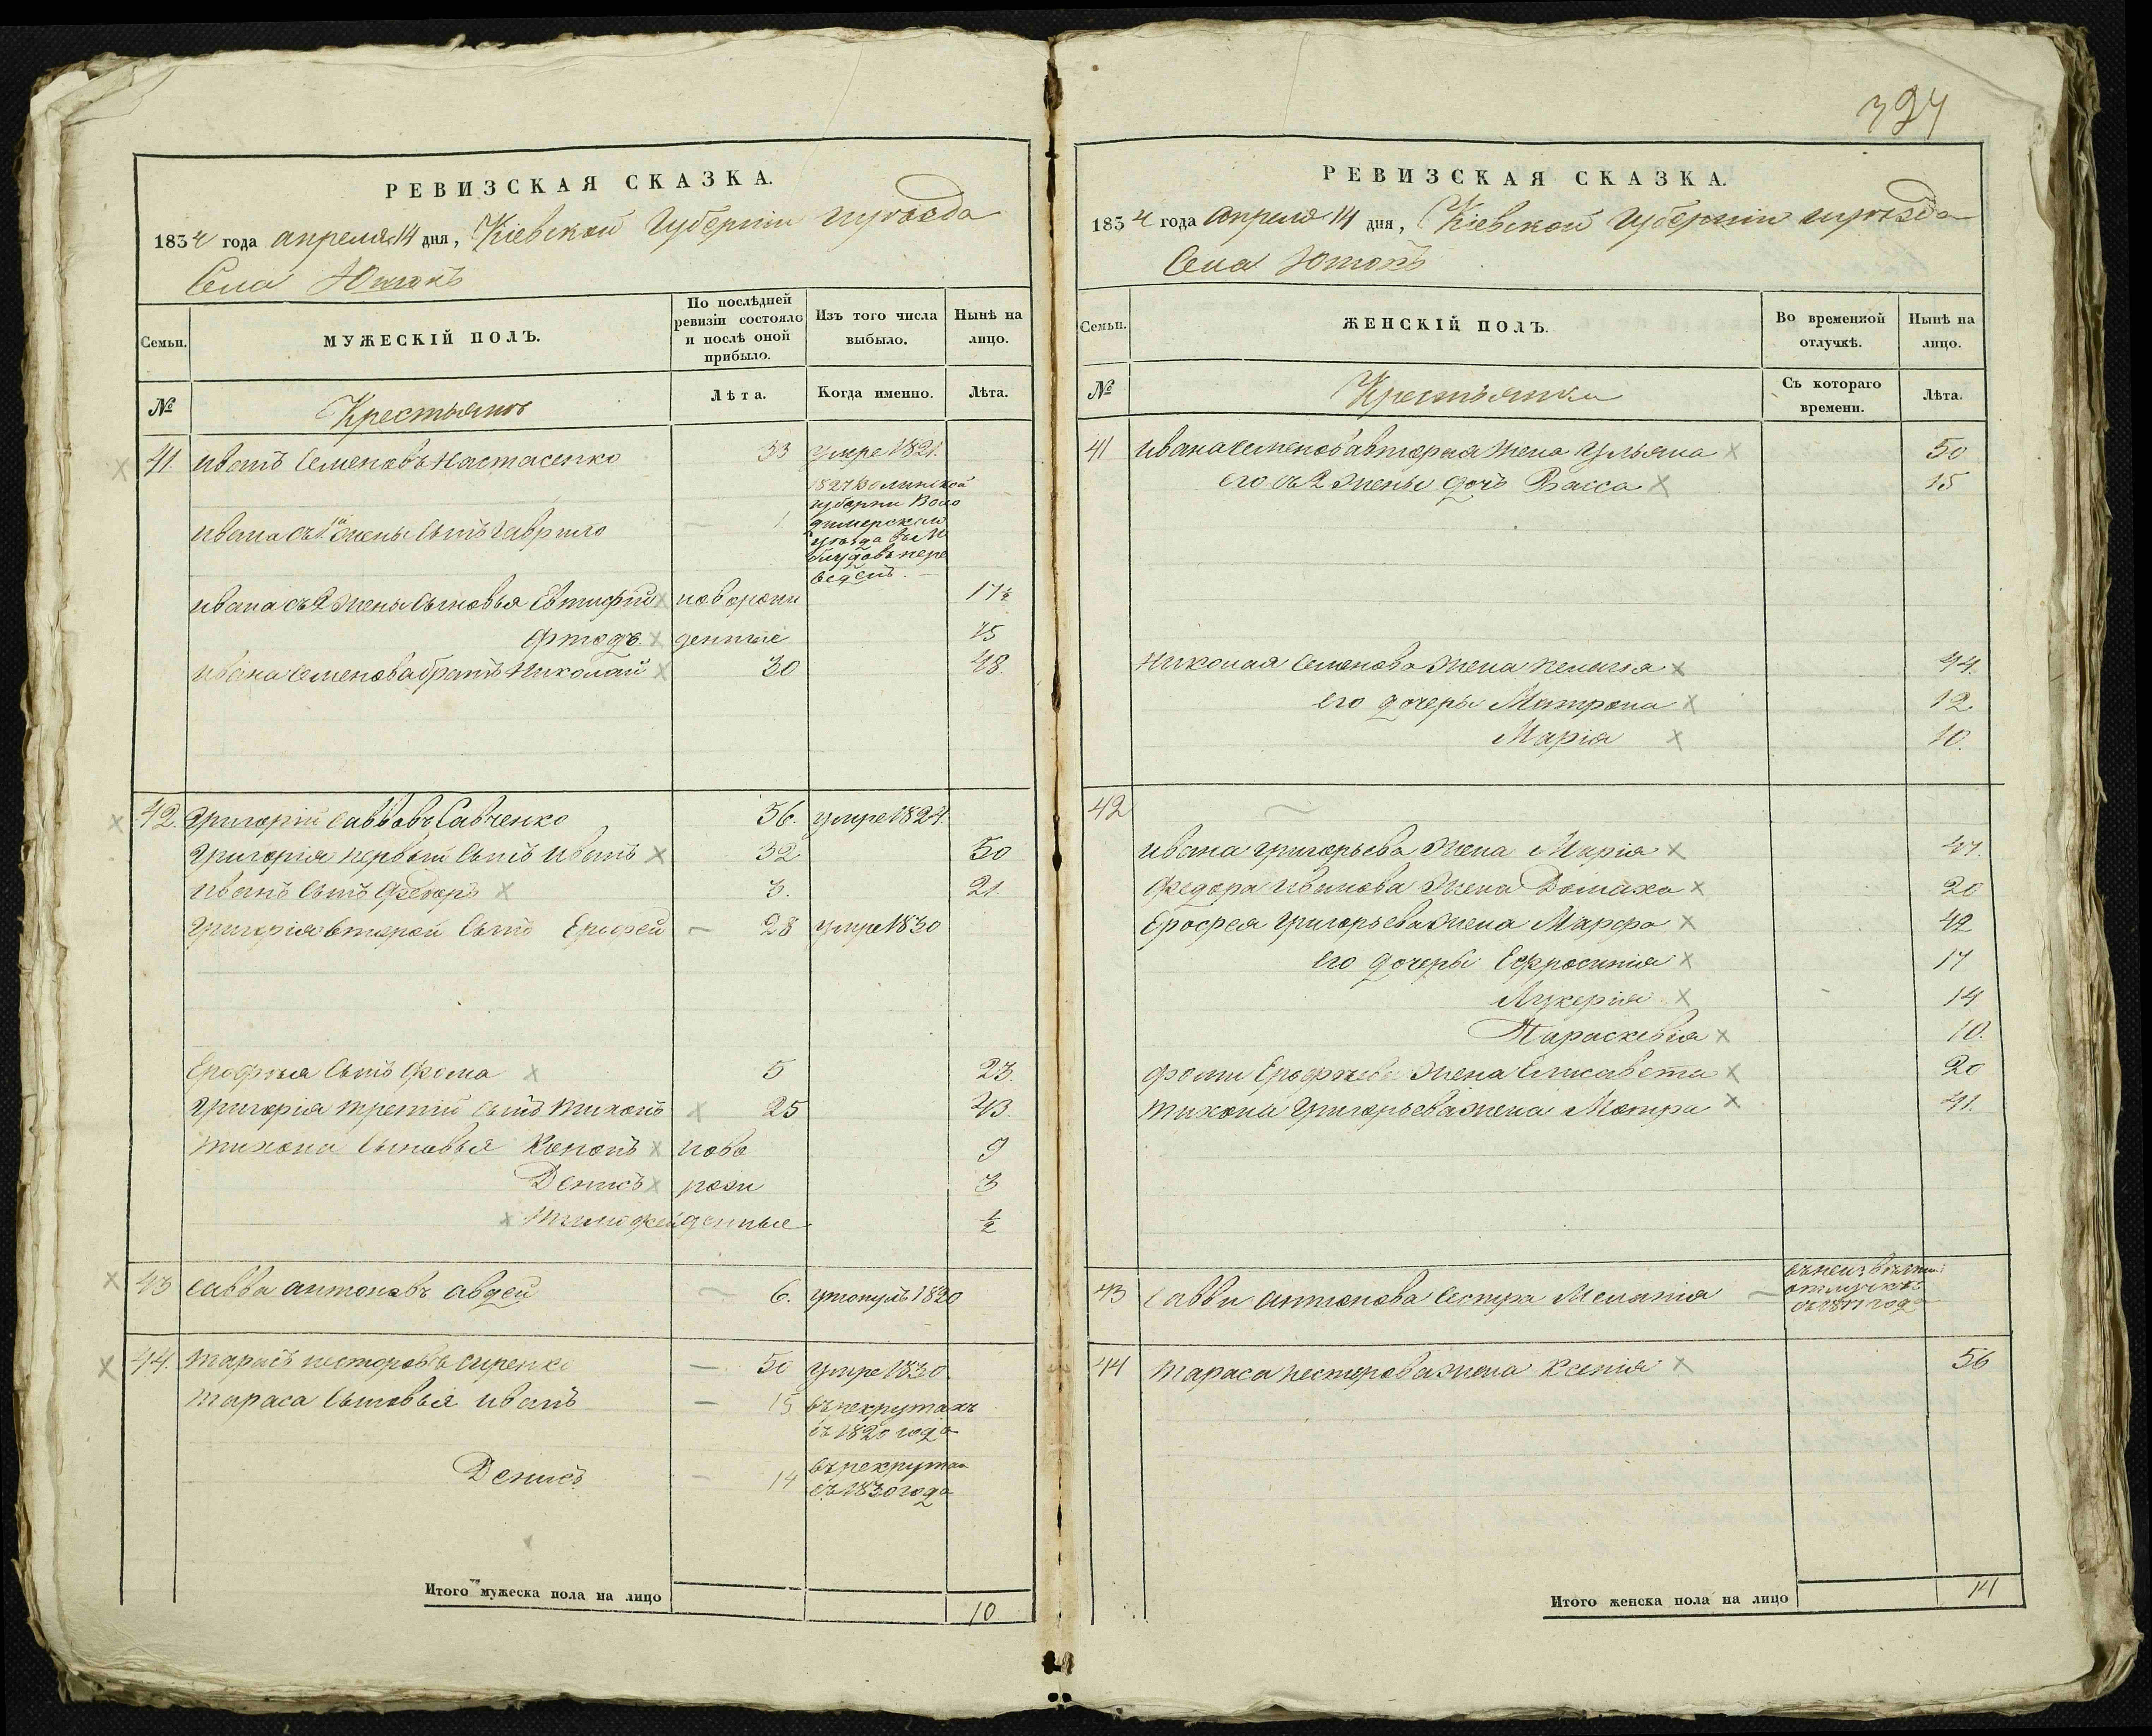 РЕВИЗСКАЯ СКАЗКА.
1834 года апреля 14 дня, Кіевской Губерніи уѣзда
Села Юшокъ
Семьи.
МУЖЕСКІЙ ПОЛЪ.
По послѣдней ревизіи состояло и послѣ оной прибыло.
Изъ того числа выбыло.
Нынѣ на лицо.
№
Крестьяне
Лѣта.
Когда именно.
Лѣта.
41. Иванъ Семеновъ Настасенко 33 умре 1821.
Ивана съ 1й жены сынъ Гаврило 1
1827 Волинской
губерни Воло
димерском
уѣзда
переведенъ.
Ивана съ 2 жены сыновья Евтифій новорожи 17½
денные 15
Ивана Семенова братъ Николай 30 48.
42. Григорій Саввовъ Савченко 56. умре 1824.
Григорія первый сынъ Иванъ 32 50
Иванъ сынъ Федоръ 3. 21.
Григорія второй сынъ Ерофей — 28 умре 1830
Ерофѣя сынъ Фома 5 23.
Григорія третій сынъ Тихонъ 25 43.
Тихона сыновья Кононъ ново 9
Денисъ рожи 3
Тимофей денные ½
43 Савва Антоновъ Авдей — 6. утонулъ 1820
44. Тарасъ Несторовъ Сиренко — 50 умре 1830
Тараса сыновья Иванъ — 15 въ некрутахъ
съ 1820 года
Денисъ — 14 въ рекрутах
съ 1830 года
Итого мужеска пола на лицо 10
394
РЕВИЗСКАЯ СКАЗКА.
1834 года апреля 14 дня, Кіевской Губерніи уѣзда
Села Юшокъ
Семьи.
ЖЕНСКІЙ ПОЛЪ.
Во временной отлучкѣ.
Нынѣ на лицо.
№
Крестьянки
Съ котораго времени.
Лѣта.
41 Ивана Семенова вторая жена Ульяна 50
его съ 2 жены дочь Васса 15
Николая Семенова жена Пелагія 44.
его дочеры Матрона 12.
Марія 10.
42
Ивана Григорьева жена Марія 47.
Федора Иванова жена Домаха 20
Ерофея Григорьева жена Марфа 42
его дочеры Ефросинія 17
Лукерія 14
Параскевія 10.
Фомы Ерофѣева жена Елисавета 20
Тихона Григорьева жена Мотра 41.
43 Саввы Антонова сестра Меланія —
въ неизвѣстной
отлучкѣ
съ года
44 Тараса Несторова жена Ксенія 56
Итого женска пола на лицо 14